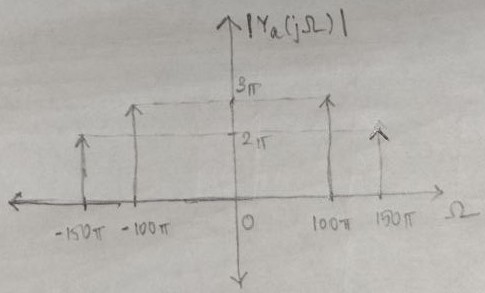 |Ya(jΩ)|
3π
2π
-150π -100π 0 100π 150π Ω